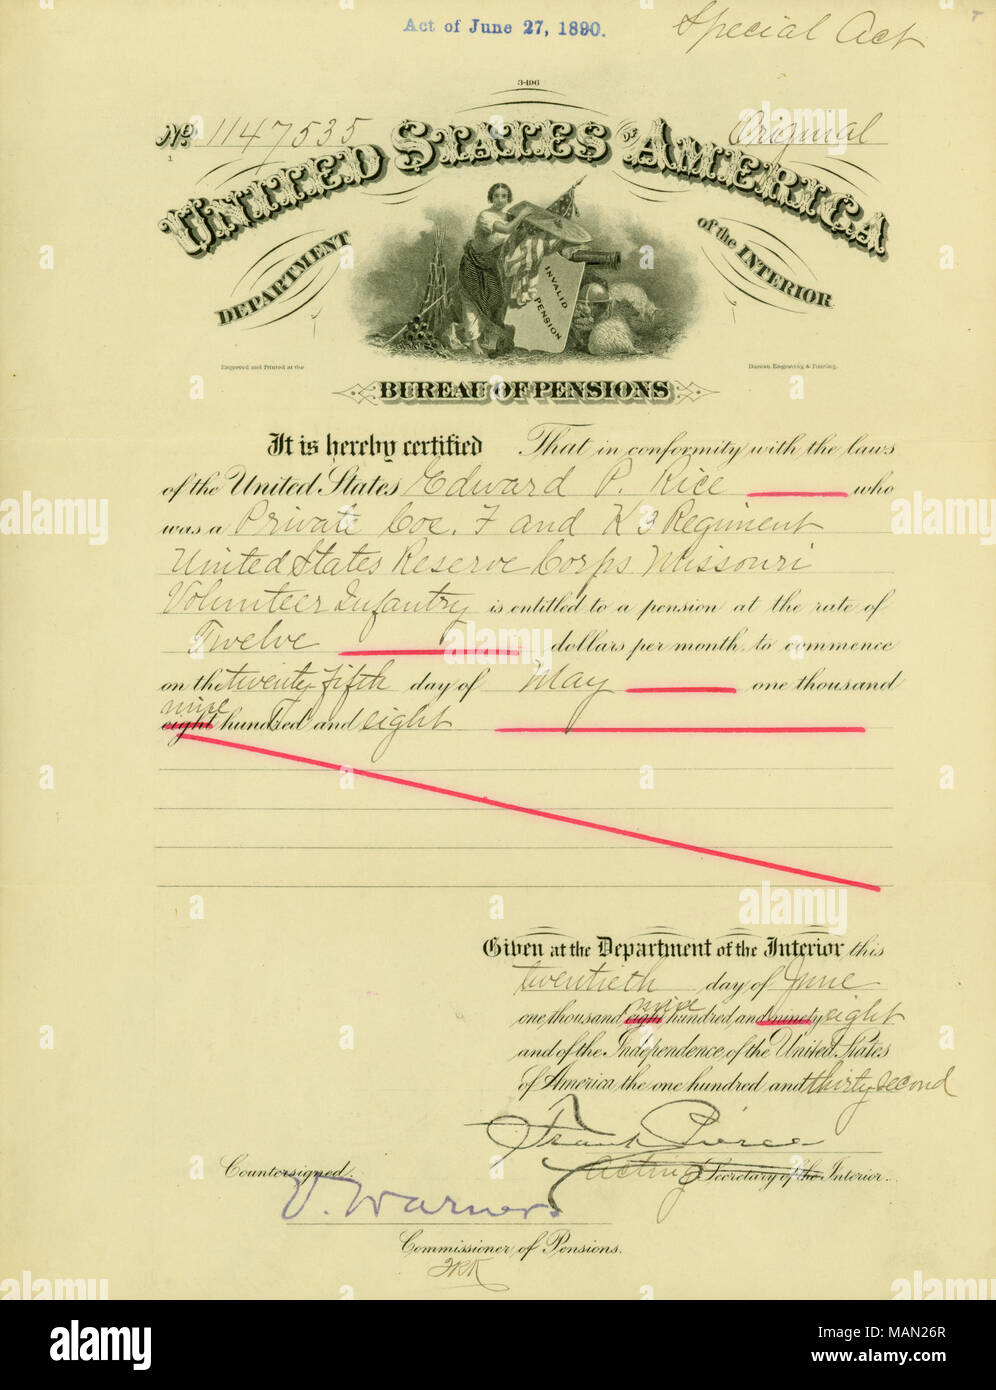 Act of June 27, 1890.
Special Act
3-106
No. 1147535
Original
UNITED STATES OF AMERICA
DEPARTMENT of the INTERIOR
INVALID PENSION
Engraved and Printed at the
Bureau, Engraving & Printing.
BUREAU OF PENSIONS
It is hereby certified That in conformity with the laws
of the United States Edward P. Rice who
was a Private Cos. F and K 3 Regiment
United States Reserve Corps Missouri
Volunteer Infantry is entitled to a pension at the rate of
Twelve dollars per month, to commence
on the twenty-fifth day of May one thousand
nine
eight hundred and eight
Given at the Department of the Interior this
twentieth day of June
nine
one thousand eight hundred and ninety eight
and of the Independence of the United States
of America the one hundred and thirty-second
Frank Pierce
Acting Secretary of the Interior.
Countersigned,
V. Warner.
Commissioner of Pensions.
alamy stock photo
alamy
Image ID: MAN26R
www.alamy.com